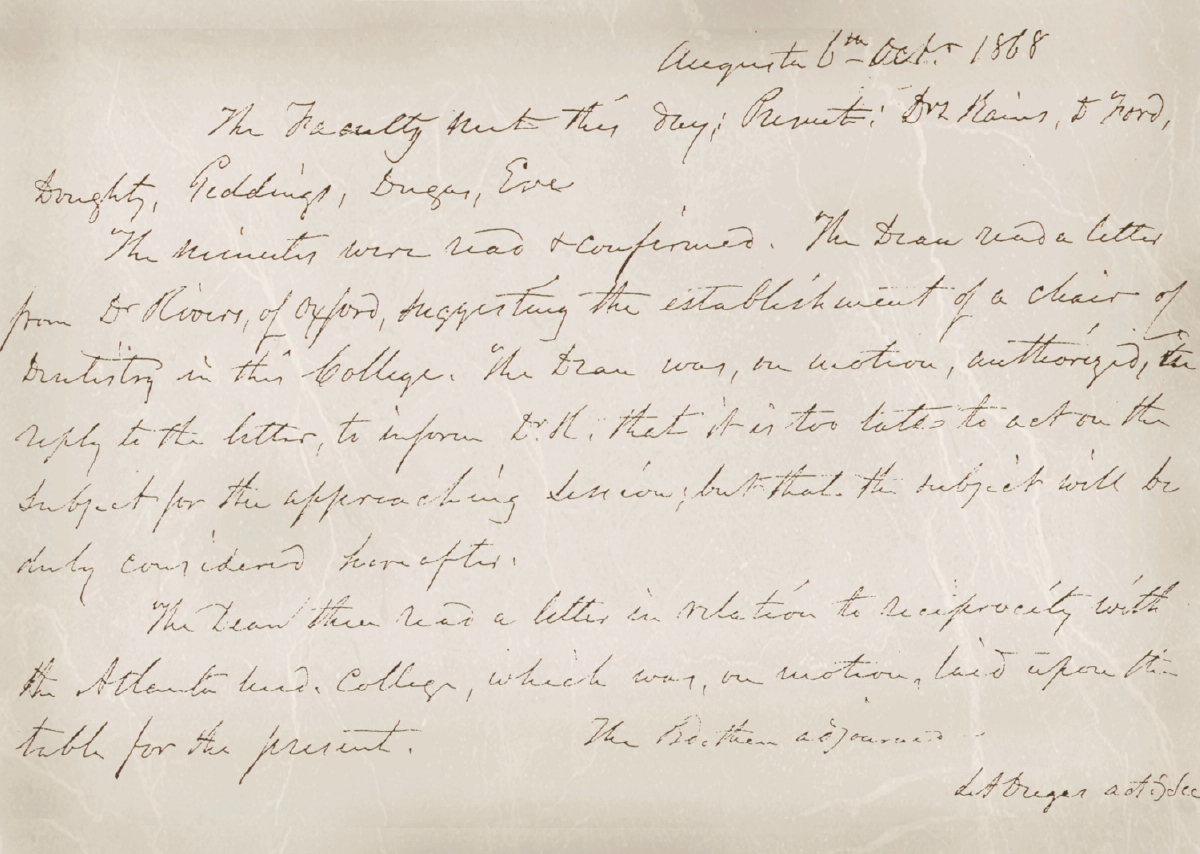 Augusta 6th Octr. 1868
The Faculty met this day; Present: Drs Rains, D Ford,
Doughty, Geddings, Dugas, Eve
The minutes were read & confirmed. The Dean read a letter
from Dr Rivers, of Oxford, suggesting the establishment of a chair of
Dentistry in this College. The Dean was, on motion, authorized, in
reply to the letter, to inform Dr. R. that it is too late to act on the
subject for the approaching session; but that the subject will be
duly considered hereafter.
The Dean then read a letter in relation to reciprocity with
the Atlanta Med. College, which was, on motion, laid upon the
table for the present. The Bd. then adjourned
LA Dugas actg Sec